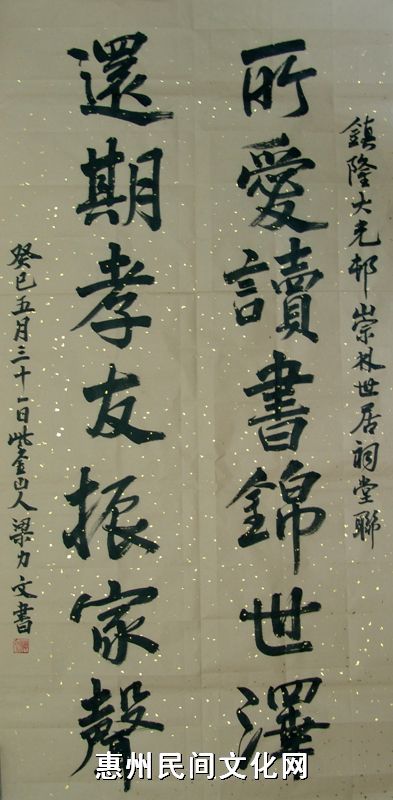 鎮隆大光邨崇林世居祠堂聯
所愛讀書錦世澤
還期孝友振家聲
癸巳五月三十一日紫金山人梁力文書
惠州民间文化网